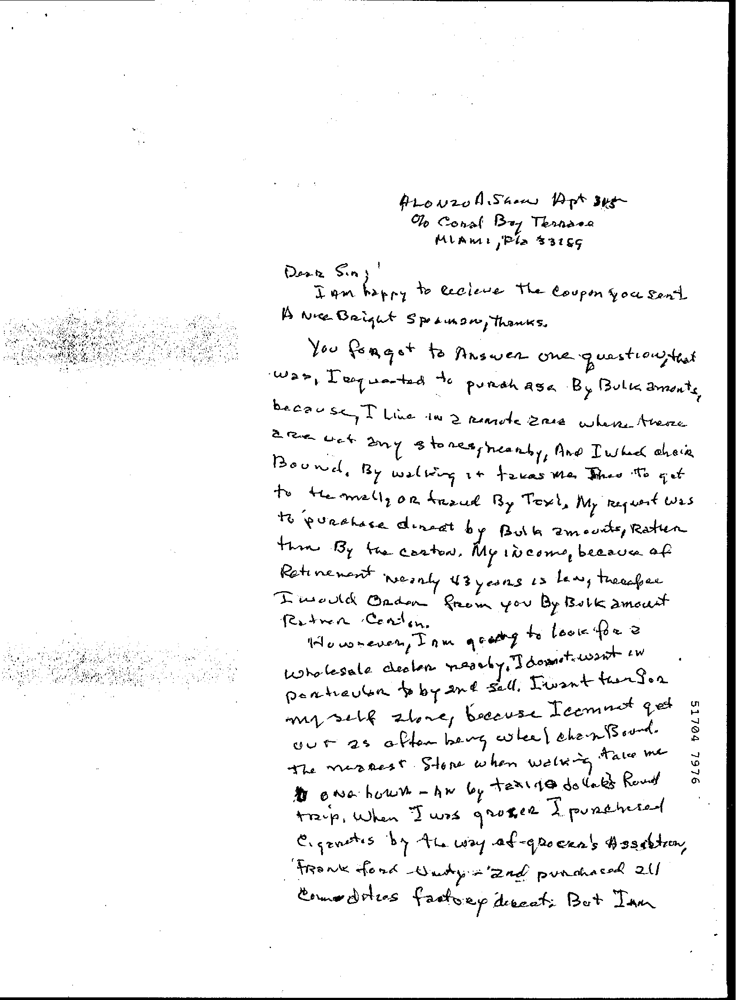 Alonzo A. Shaw Apt 345
c/o Coral Bay Terrace
MIAMI, Fla 33169
Dear Sir,
I Am happy to recieve the Coupon you sent
A Nice Bright Specimen, Thanks.
You forgot to Answer one question, that
was, I requested to purchase By Bulk amonts,
because, I Live in a remote area where there
are not any stores, nearby, And I wheel chair
Bound. By walking it takes me to get
to the mall, or travel By Taxi, My request was
to purchase direct by Bulk amounts, Rather
than By the carton. My income, because of
Retirement nearly 43 years is low, therefore
I would Order from you By Bulk amount
Rather Carton.
However, I am going to look for a
wholesale dealer nearby, I do not want in
particular to by and sell. I want them for
myself alone, because I cannot get
out as often being wheel chair Bound.
The nearest Store when walking take me
one hour - An by taxi 10 dollars Round
trip, When I was grocer I purchased
Cigarettes by the way of grocer's
Frankford - Unity - and purchased all
Commodities factory direct. But I am
51704 7976